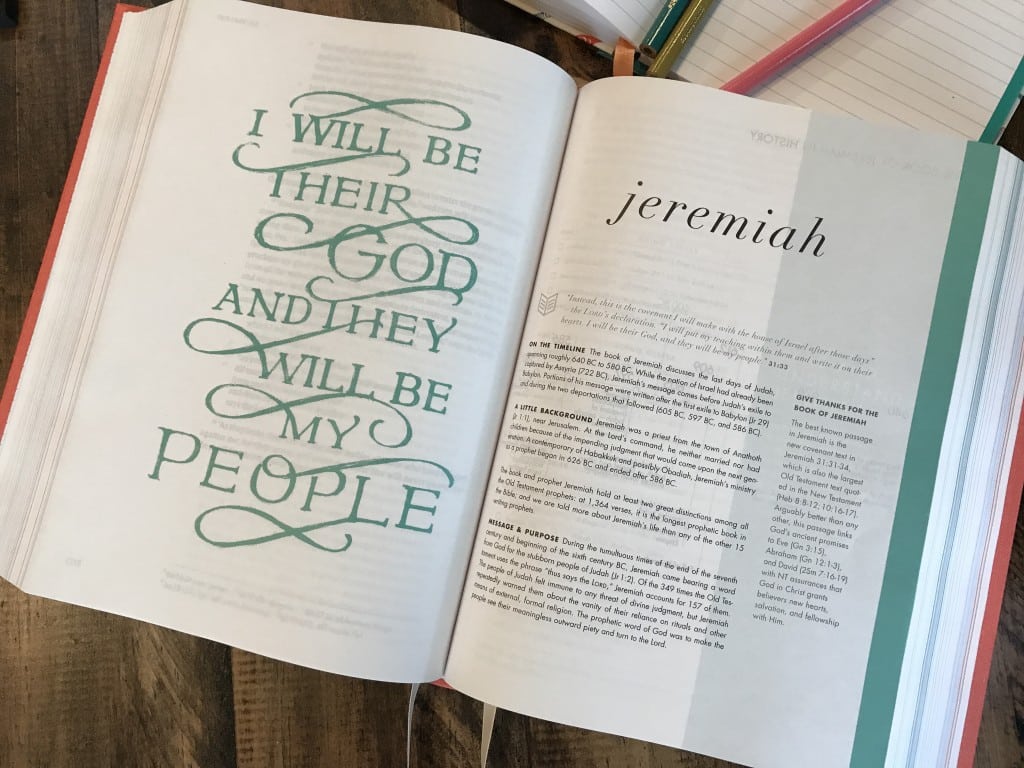 I WILL BE
THEIR
GOD
AND THEY
WILL BE
MY
PEOPLE
jeremiah
"Instead, this is the covenant I will make with the house of Israel after those days"
the LORD's declaration. "I will put my teaching within them and write it on their
hearts. I will be their God, and they will be my people." 31:33
ON THE TIMELINE The book of Jeremiah discusses the last days of Judah,
spanning roughly 640 BC to 580 BC. While the nation of Israel had already been
captured by Assyria (722 BC), Jeremiah's message comes before Judah's exile to
Babylon. Portions of his message were written after the first exile to Babylon (Jr 29)
and during the two deportations that followed (605 BC, 597 BC, and 586 BC).
A LITTLE BACKGROUND Jeremiah was a priest from the town of Anathoth
(Jr 1:1), near Jerusalem. At the Lord's command, he neither married nor had
children because of the impending judgment that would come upon the next gen-
eration. A contemporary of Habakkuk and possibly Obadiah, Jeremiah's ministry
as a prophet began in 626 BC and ended after 586 BC.
The book and prophet Jeremiah hold at least two great distinctions among all
the Old Testament prophets: at 1,364 verses, it is the longest prophetic book in
the Bible, and we are told more about Jeremiah's life than any of the other 15
writing prophets.
MESSAGE & PURPOSE During the tumultuous times of the end of the seventh
century and beginning of the sixth century BC, Jeremiah came bearing a word
from God for the stubborn people of Judah (Jr 1:2). Of the 349 times the Old Tes-
tament uses the phrase "thus says the LORD," Jeremiah accounts for 157 of them.
The people of Judah felt immune to any threat of divine judgment, but Jeremiah
repeatedly warned them about the vanity of their reliance on rituals and other
means of external, formal religion. The prophetic word of God was to make the
people see their meaningless outward piety and turn to the Lord.
GIVE THANKS FOR THE
BOOK OF JEREMIAH
The best known passage
in Jeremiah is the
new covenant text in
Jeremiah 31:31-34,
which is also the largest
Old Testament text quot-
ed in the New Testament
(Heb 8:8-12; 10:16-17).
Arguably better than any
other, this passage links
God's ancient promises
to Eve (Gn 3:15),
Abraham (Gn 12:1-3),
and David (2Sm 7:16-19)
with NT assurances that
God in Christ grants
believers new hearts,
salvation, and fellowship
with Him.